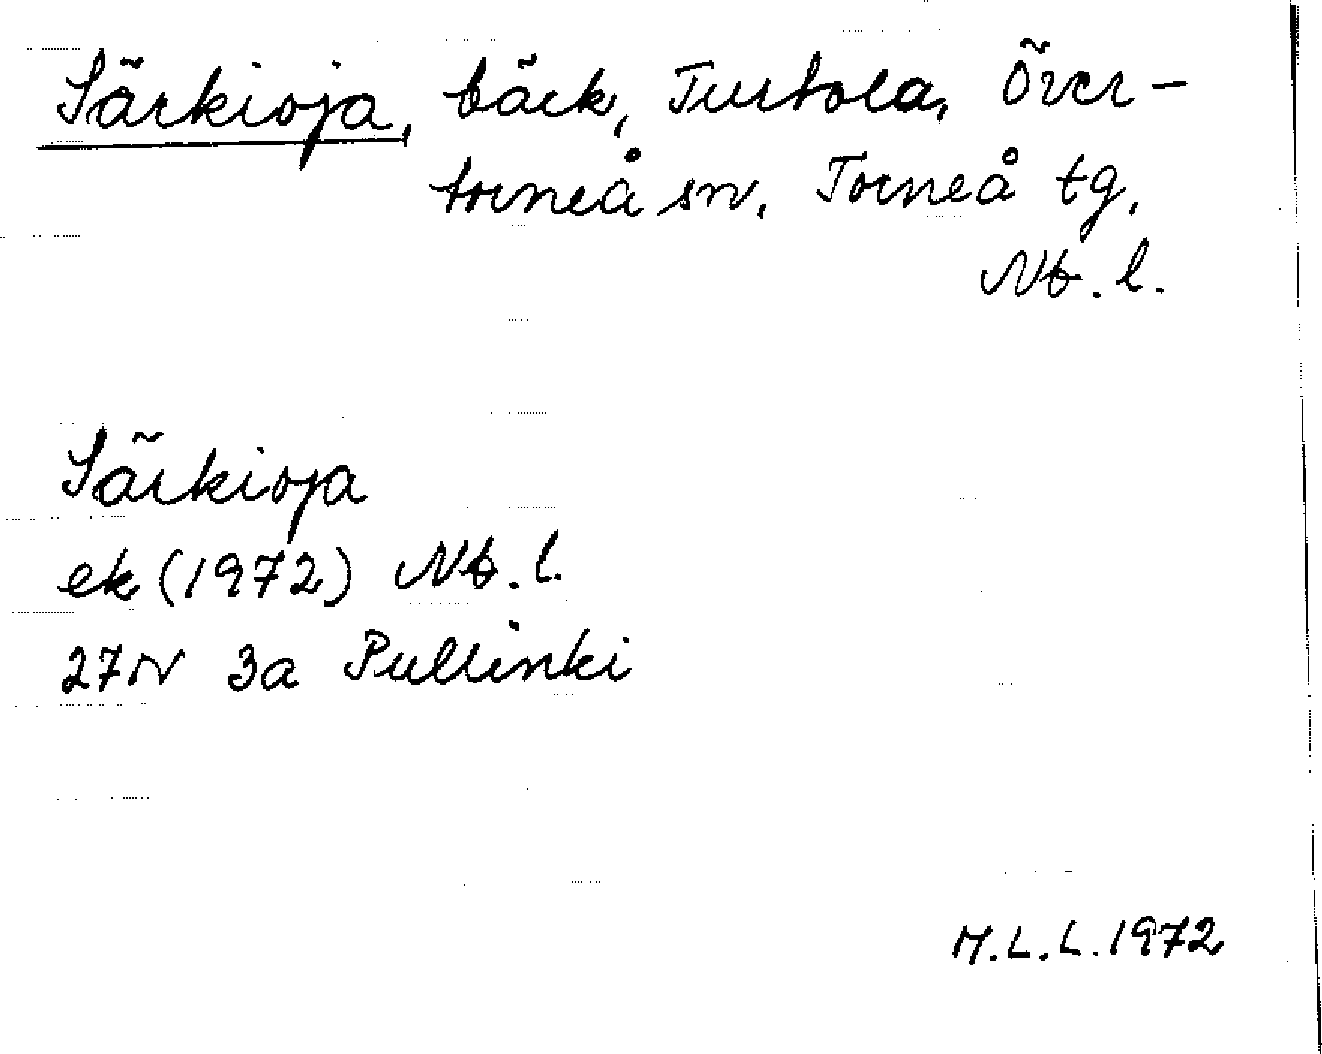 Särkioja, bäck, Turtola, Över-
torneå sn, Torneå tg,
Nb. l.
Särkioja
ek (1972) Nb. l.
27N 3a Pullinki
M.L.L. 1972